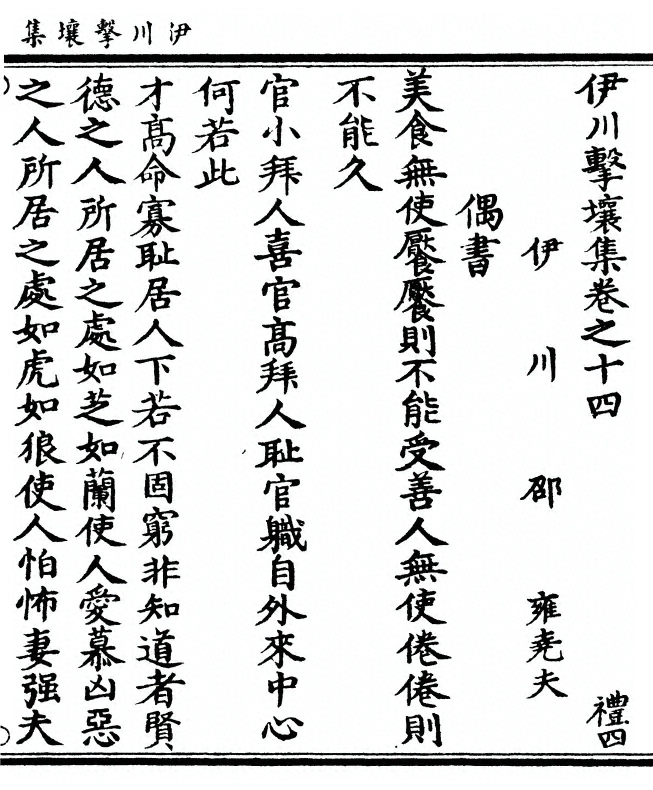 伊川擊壤集
伊川擊壤集卷之十四
禮四
伊川邵雍堯夫
偶書
美食無使饜饜則不能受善人無使倦倦則
不能久
官小拜人喜官高拜人恥官職自外來中心
何若此
才高命寡恥居人下若不固窮非知道者賢
德之人所居之處如芝如蘭使人愛慕凶惡
之人所居之處如虎如狼使人怕怖妻强夫